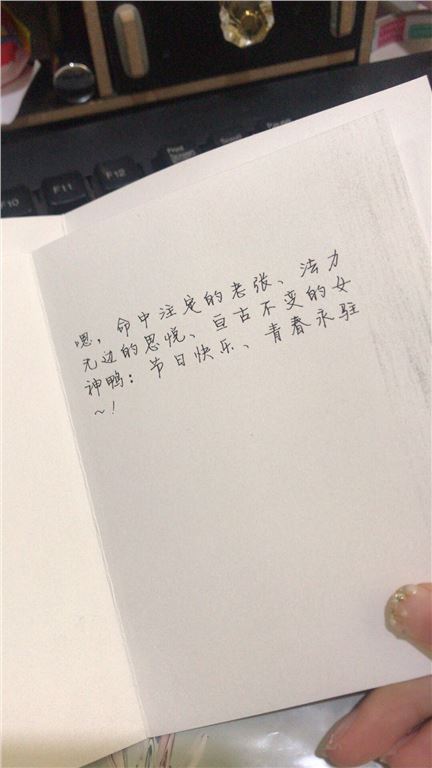 F10
F11
F12
Print
Screen
嗯，命中注定的老张、法力
无边的思悦、亘古不变的女
神鸭：节日快乐、青春永驻
～！